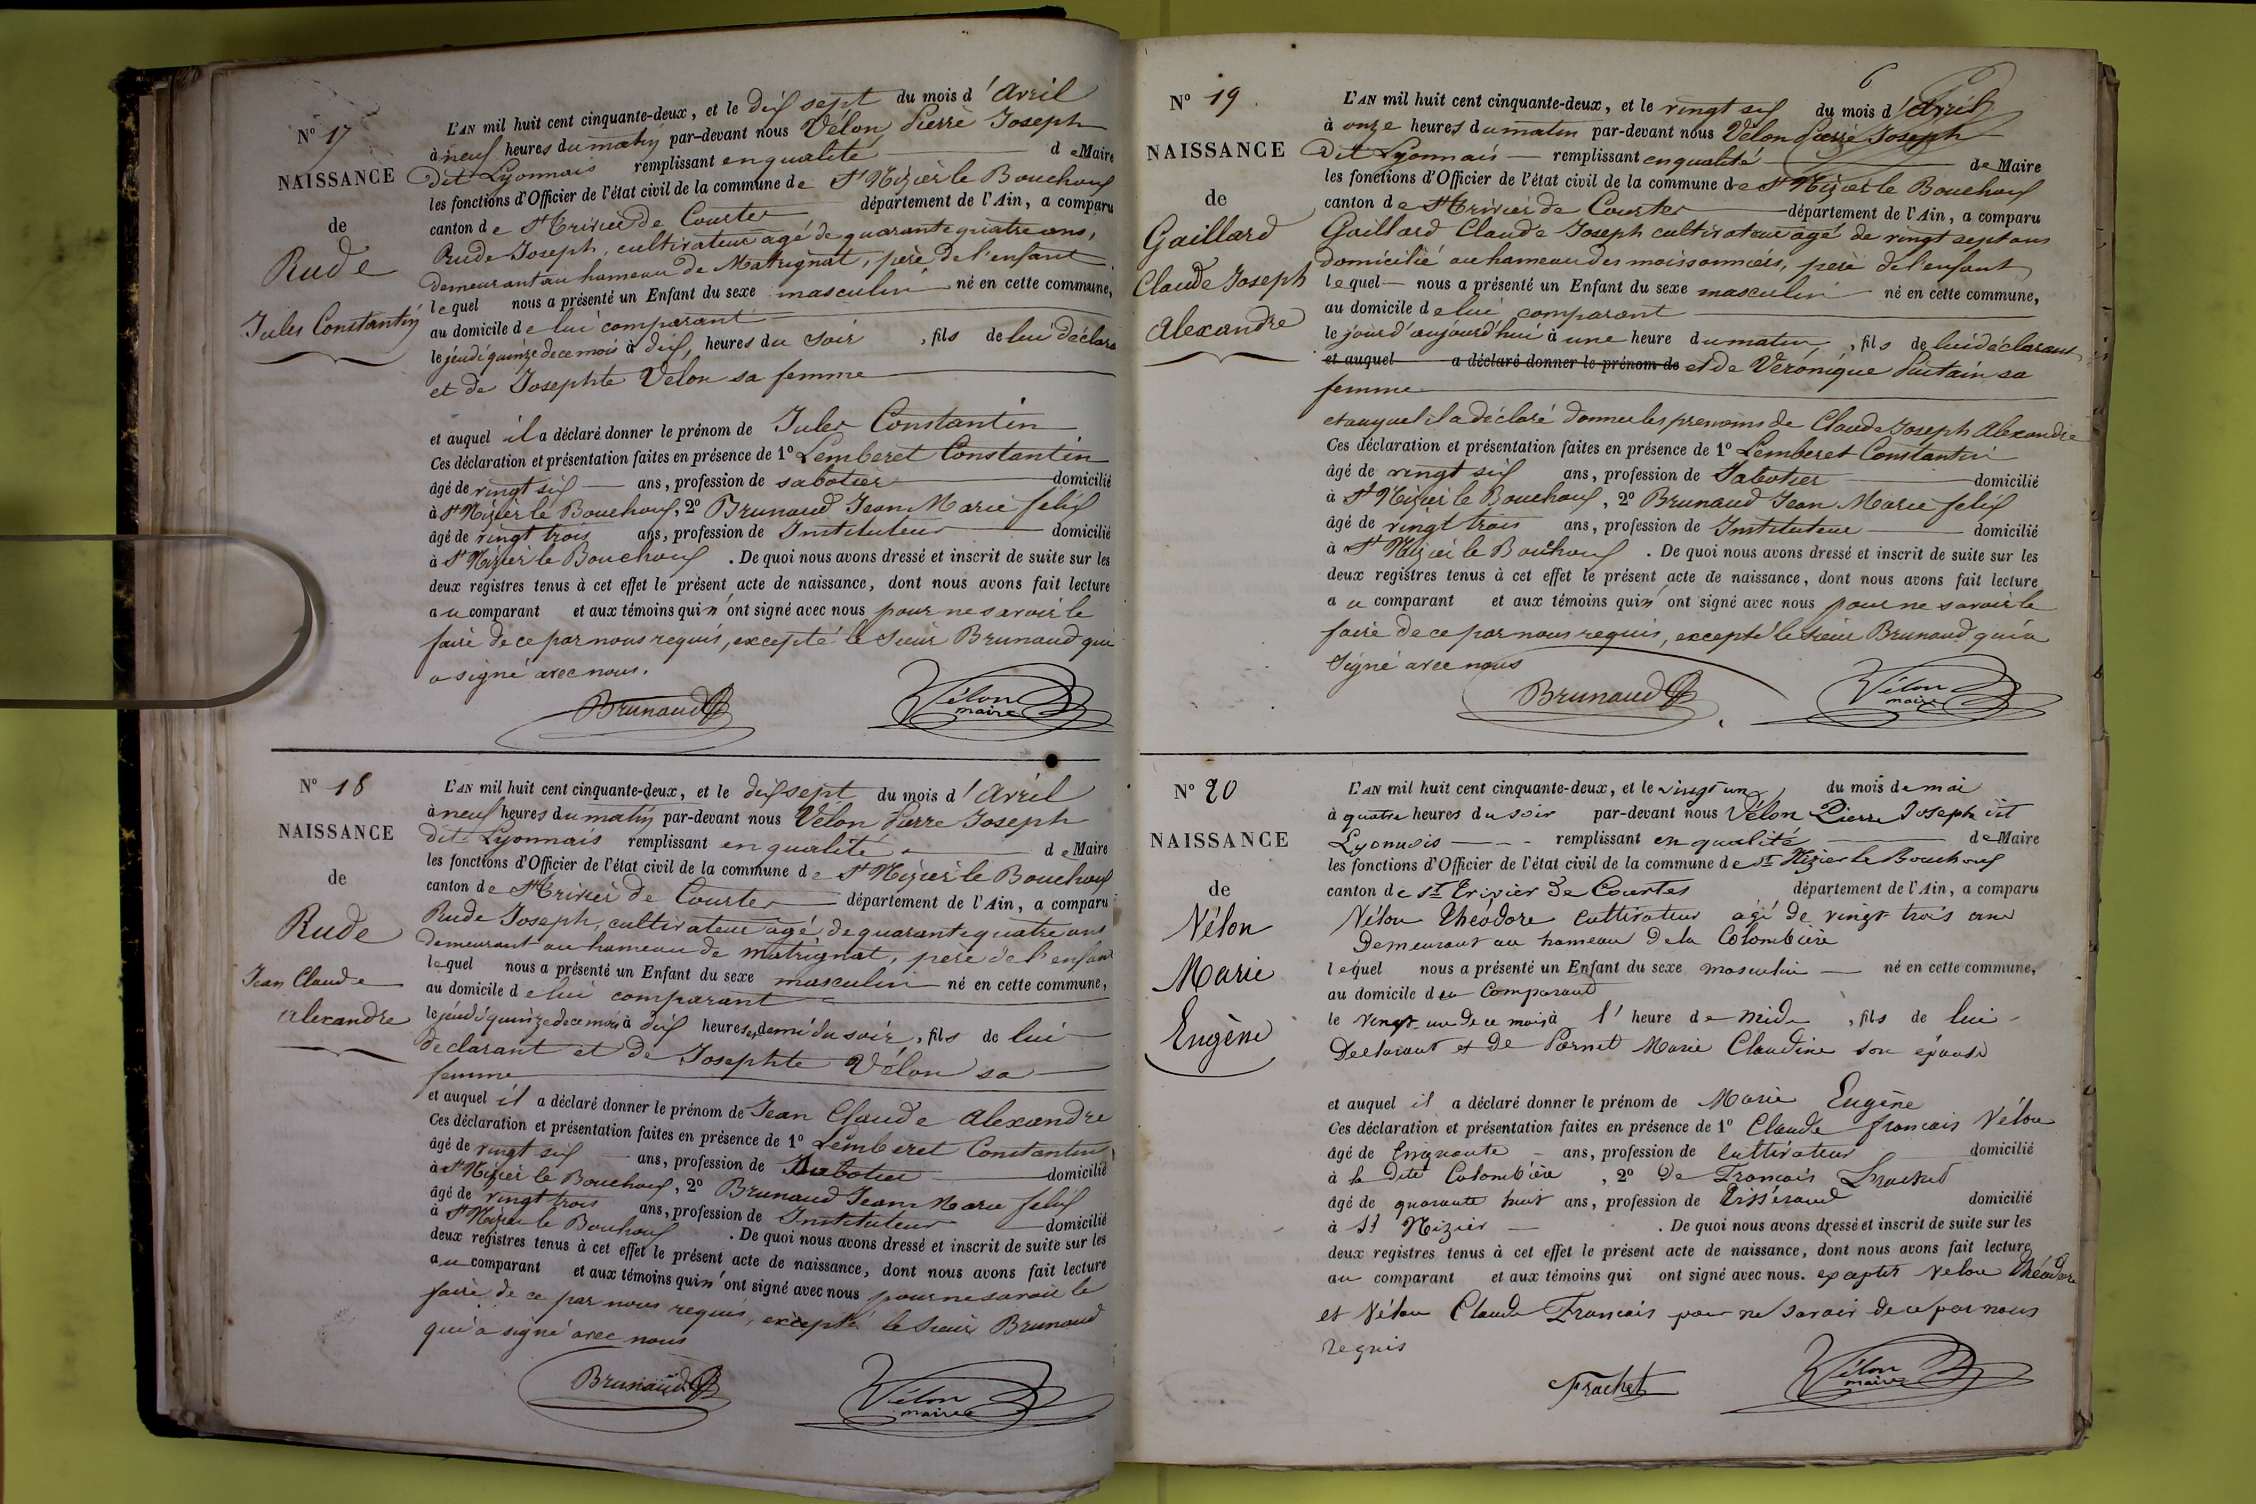 N° 17
NAISSANCE
de
Rude
Jules Constantin
L'AN mil huit cent cinquante-deux, et le dix sept du mois d'Avril
à neuf heures du matin par-devant nous Vélon Pierre Joseph
dit Lyonnais remplissant en qualité de Maire
les fonctions d'Officier de l'état civil de la commune de St Nizier le Bouchoux
canton de St Trivier de Courtes département de l'Ain, a comparu
Rude Joseph, cultivateur agé de quarante quatre ans,
demeurant au hameau de Matrignat, père de l'enfant
lequel nous a présenté un Enfant du sexe masculin né en cette commune,
au domicile de lui comparant
le jeudi quinze de ce mois à dix heures du soir, fils de lui déclara
et de Josephte Vélon sa femme
et auquel il a déclaré donner le prénom de Jules Constantin
Ces déclaration et présentation faites en présence de 1° Lemberet Constantin
âgé de vingt six ans, profession de sabotier domicilié
à St Nizier le Bouchoux, 2° Brunaud Jean Marie felix
âgé de vingt trois ans, profession de Instituteur domicilié
à St Nizier le Bouchoux. De quoi nous avons dressé et inscrit de suite sur les
deux registres tenus à cet effet le présent acte de naissance, dont nous avons fait lecture
au comparant et aux témoins qui n'ont signé avec nous pour ne savoir le
faire de ce par nous requis, excepté le sieur Brunaud qui
a signé avec nous.
Brunaud Vélon
maire
N° 18
NAISSANCE
de
Rude
Jean Claude
alexandre
L'AN mil huit cent cinquante-deux, et le dix sept du mois d'Avril
à neuf heures du matin par-devant nous Vélon Pierre Joseph
dit Lyonnais remplissant en qualité de Maire
les fonctions d'Officier de l'état civil de la commune de St Nizier le Bouchoux
canton de St Trivier de Courtes département de l'Ain, a comparu
Rude Joseph, cultivateur agé de quarante quatre ans
demeurant au hameau de matrignat, père de l'enfant
lequel nous a présenté un Enfant du sexe masculin né en cette commune,
au domicile de lui comparant
le jeudi quinze de ce mois à dix heures et demi du soir, fils de lui
déclarant et de Josephte Vélon sa
femme
et auquel il a déclaré donner le prénom de Jean Claude alexandre
Ces déclaration et présentation faites en présence de 1° Lemberet Constantin
âgé de vingt six ans, profession de Sabotier domicilié
à St Nizier le Bouchoux, 2° Brunaud Jean Marie felix
âgé de vingt trois ans, profession de Instituteur domicilié
à St Nizier le Bouchoux. De quoi nous avons dressé et inscrit de suite sur les
deux registres tenus à cet effet le présent acte de naissance, dont nous avons fait lecture
au comparant et aux témoins qui n'ont signé avec nous pour ne savoir le
faire de ce par nous requis, excepté le sieur Brunaud
qui a signé avec nous
Brunaud Vélon
maire
6
N° 19
NAISSANCE
de
Gaillard
Claude Joseph
Alexandre
L'AN mil huit cent cinquante-deux, et le vingt six du mois d'Avril
à onze heures du matin par-devant nous Vélon Pierre Joseph
dit Lyonnais remplissant en qualité de Maire
les fonctions d'Officier de l'état civil de la commune de St Nizier le Bouchoux
canton de St Trivier de Courtes département de l'Ain, a comparu
Gaillard Claude Joseph cultivateur agé de vingt sept ans
domicilié au hameau des moissonniers, père de l'enfant
lequel nous a présenté un Enfant du sexe masculin né en cette commune,
au domicile de lui comparant
le jour d'aujourd'hui à une heure du matin, fils de lui déclarant
et auquel a déclaré donner le prénom de et de Véronique Putain sa
femme
et auquel il a déclaré donner les prenoms de Claude Joseph Alexandre
Ces déclaration et présentation faites en présence de 1° Lemberet Constantin
âgé de vingt six ans, profession de Sabotier domicilié
à St Nizier le Bouchoux, 2° Brunaud Jean Marie felix
âgé de vingt trois ans, profession de Instituteur domicilié
à St Nizier le Bouchoux. De quoi nous avons dressé et inscrit de suite sur les
deux registres tenus à cet effet le présent acte de naissance, dont nous avons fait lecture
au comparant et aux témoins qui n'ont signé avec nous pour ne savoir le
faire de ce par nous requis, excepté le sieur Brunaud qui a
signé avec nous
Brunaud Vélon
maire
N° 20
NAISSANCE
de
Vélon
Marie
Eugène
L'AN mil huit cent cinquante-deux, et le vingt un du mois de mai
à quatre heures du soir par-devant nous Vélon Pierre Joseph dit
Lyonnois remplissant en qualité de Maire
les fonctions d'Officier de l'état civil de la commune de St Nizier le Bouchoux
canton de St Trivier de Courtes département de l'Ain, a comparu
Vélon Théodore cultivateur agé de vingt trois ans
Demeurant au hameau de la Colombière
lequel nous a présenté un Enfant du sexe masculin né en cette commune,
au domicile du Comparant
le vingt un de ce mois à l'heure de midi, fils de lui
Déclarant et de Pernet Marie Claudine son épouse
et auquel il a déclaré donner le prénom de Marie Eugène
Ces déclaration et présentation faites en présence de 1° Claude francois Vélon
âgé de Cinquante ans, profession de Cultivateur domicilié
à la dite Colombière, 2° de Francois Frachet
âgé de quarante huit ans, profession de Tisserand domicilié
à St Nizier. De quoi nous avons dressé et inscrit de suite sur les
deux registres tenus à cet effet le présent acte de naissance, dont nous avons fait lecture
au comparant et aux témoins qui ont signé avec nous. exceptés Vélon Théodore
et Vélon Claude Francois pour ne savoir de ce par nous
requis
Frachet Vélon
maire